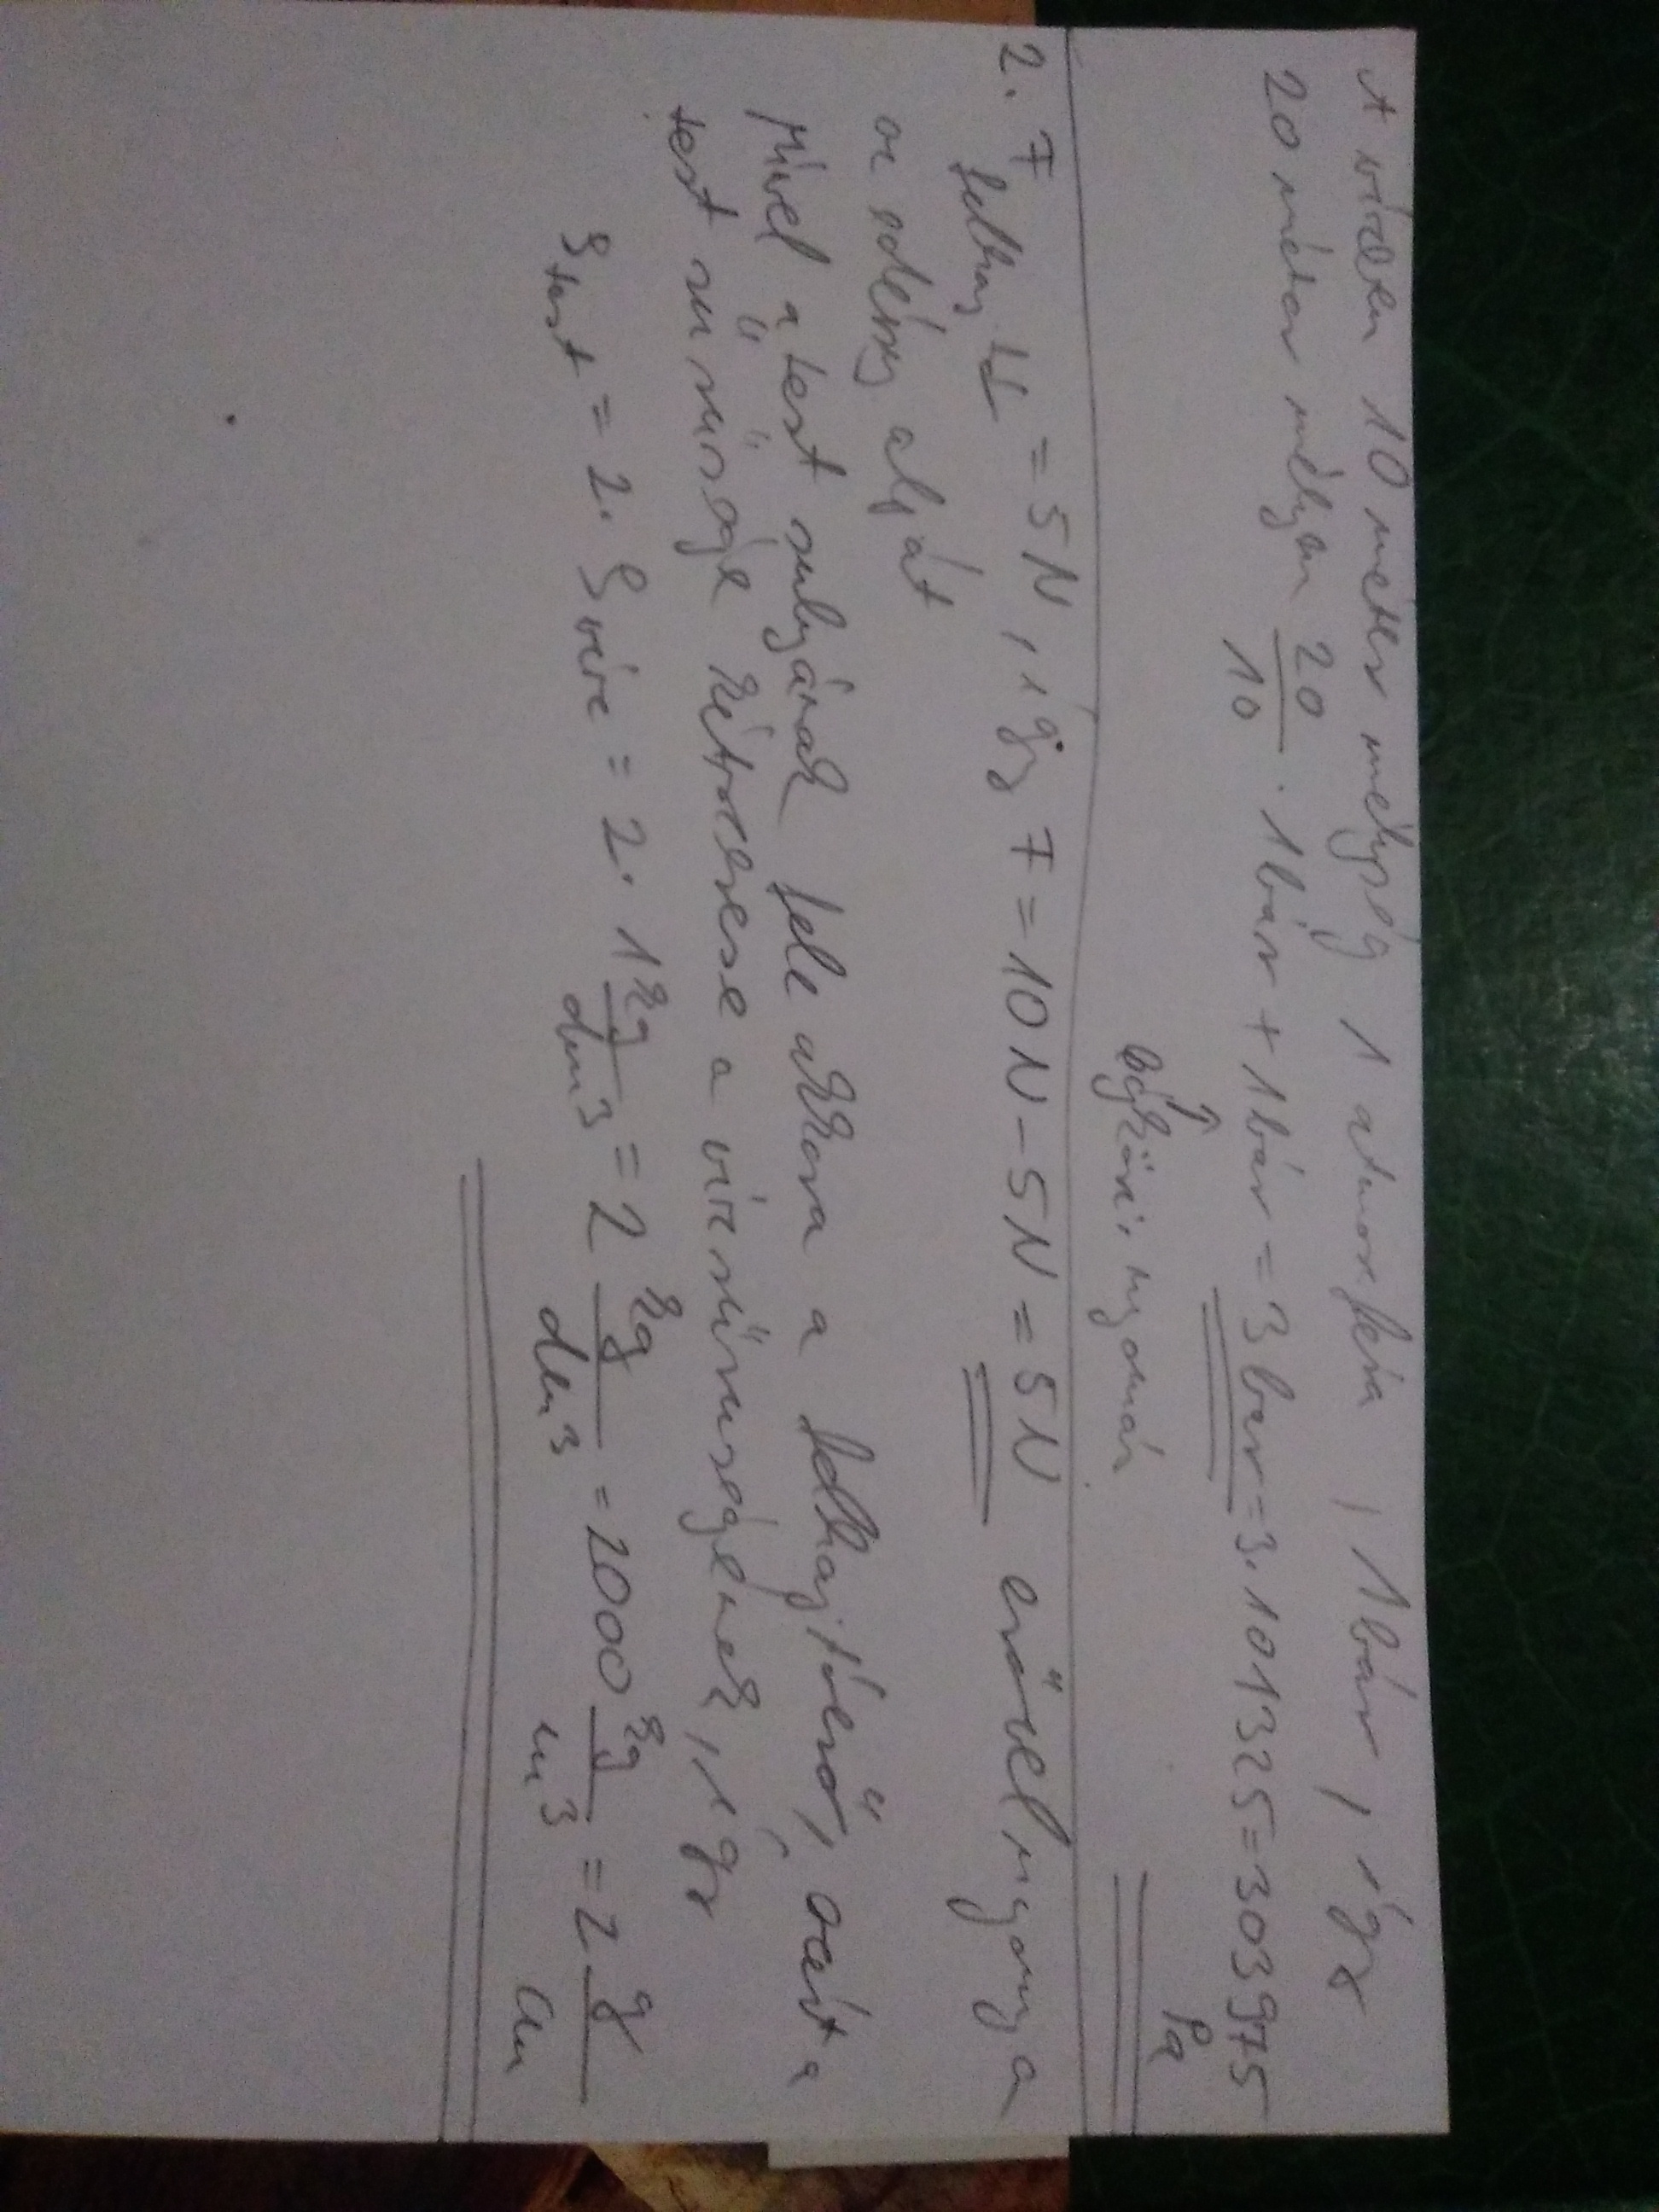 A vízben 10 méter mélység 1 atmoszféra, 1 bár, így
20 méter mélyen 20/10 · 1 bár + 1 bár = 3 bar = 3·101325 = 303975 Pa
↑
légköri nyomás
2. F felhaj. = 5N, így F = 10N - 5N = 5N erővel nyomja
az edény alját
Mivel a test sulyának fele akkora a felhajtóerő, ezért a
test sűrűsége kétszerese a víz sűrűségének, így
ρtest = 2·ρvíz = 2·1 kg/dm³ = 2 kg/dm³ = 2000 kg/m³ = 2 g/cm